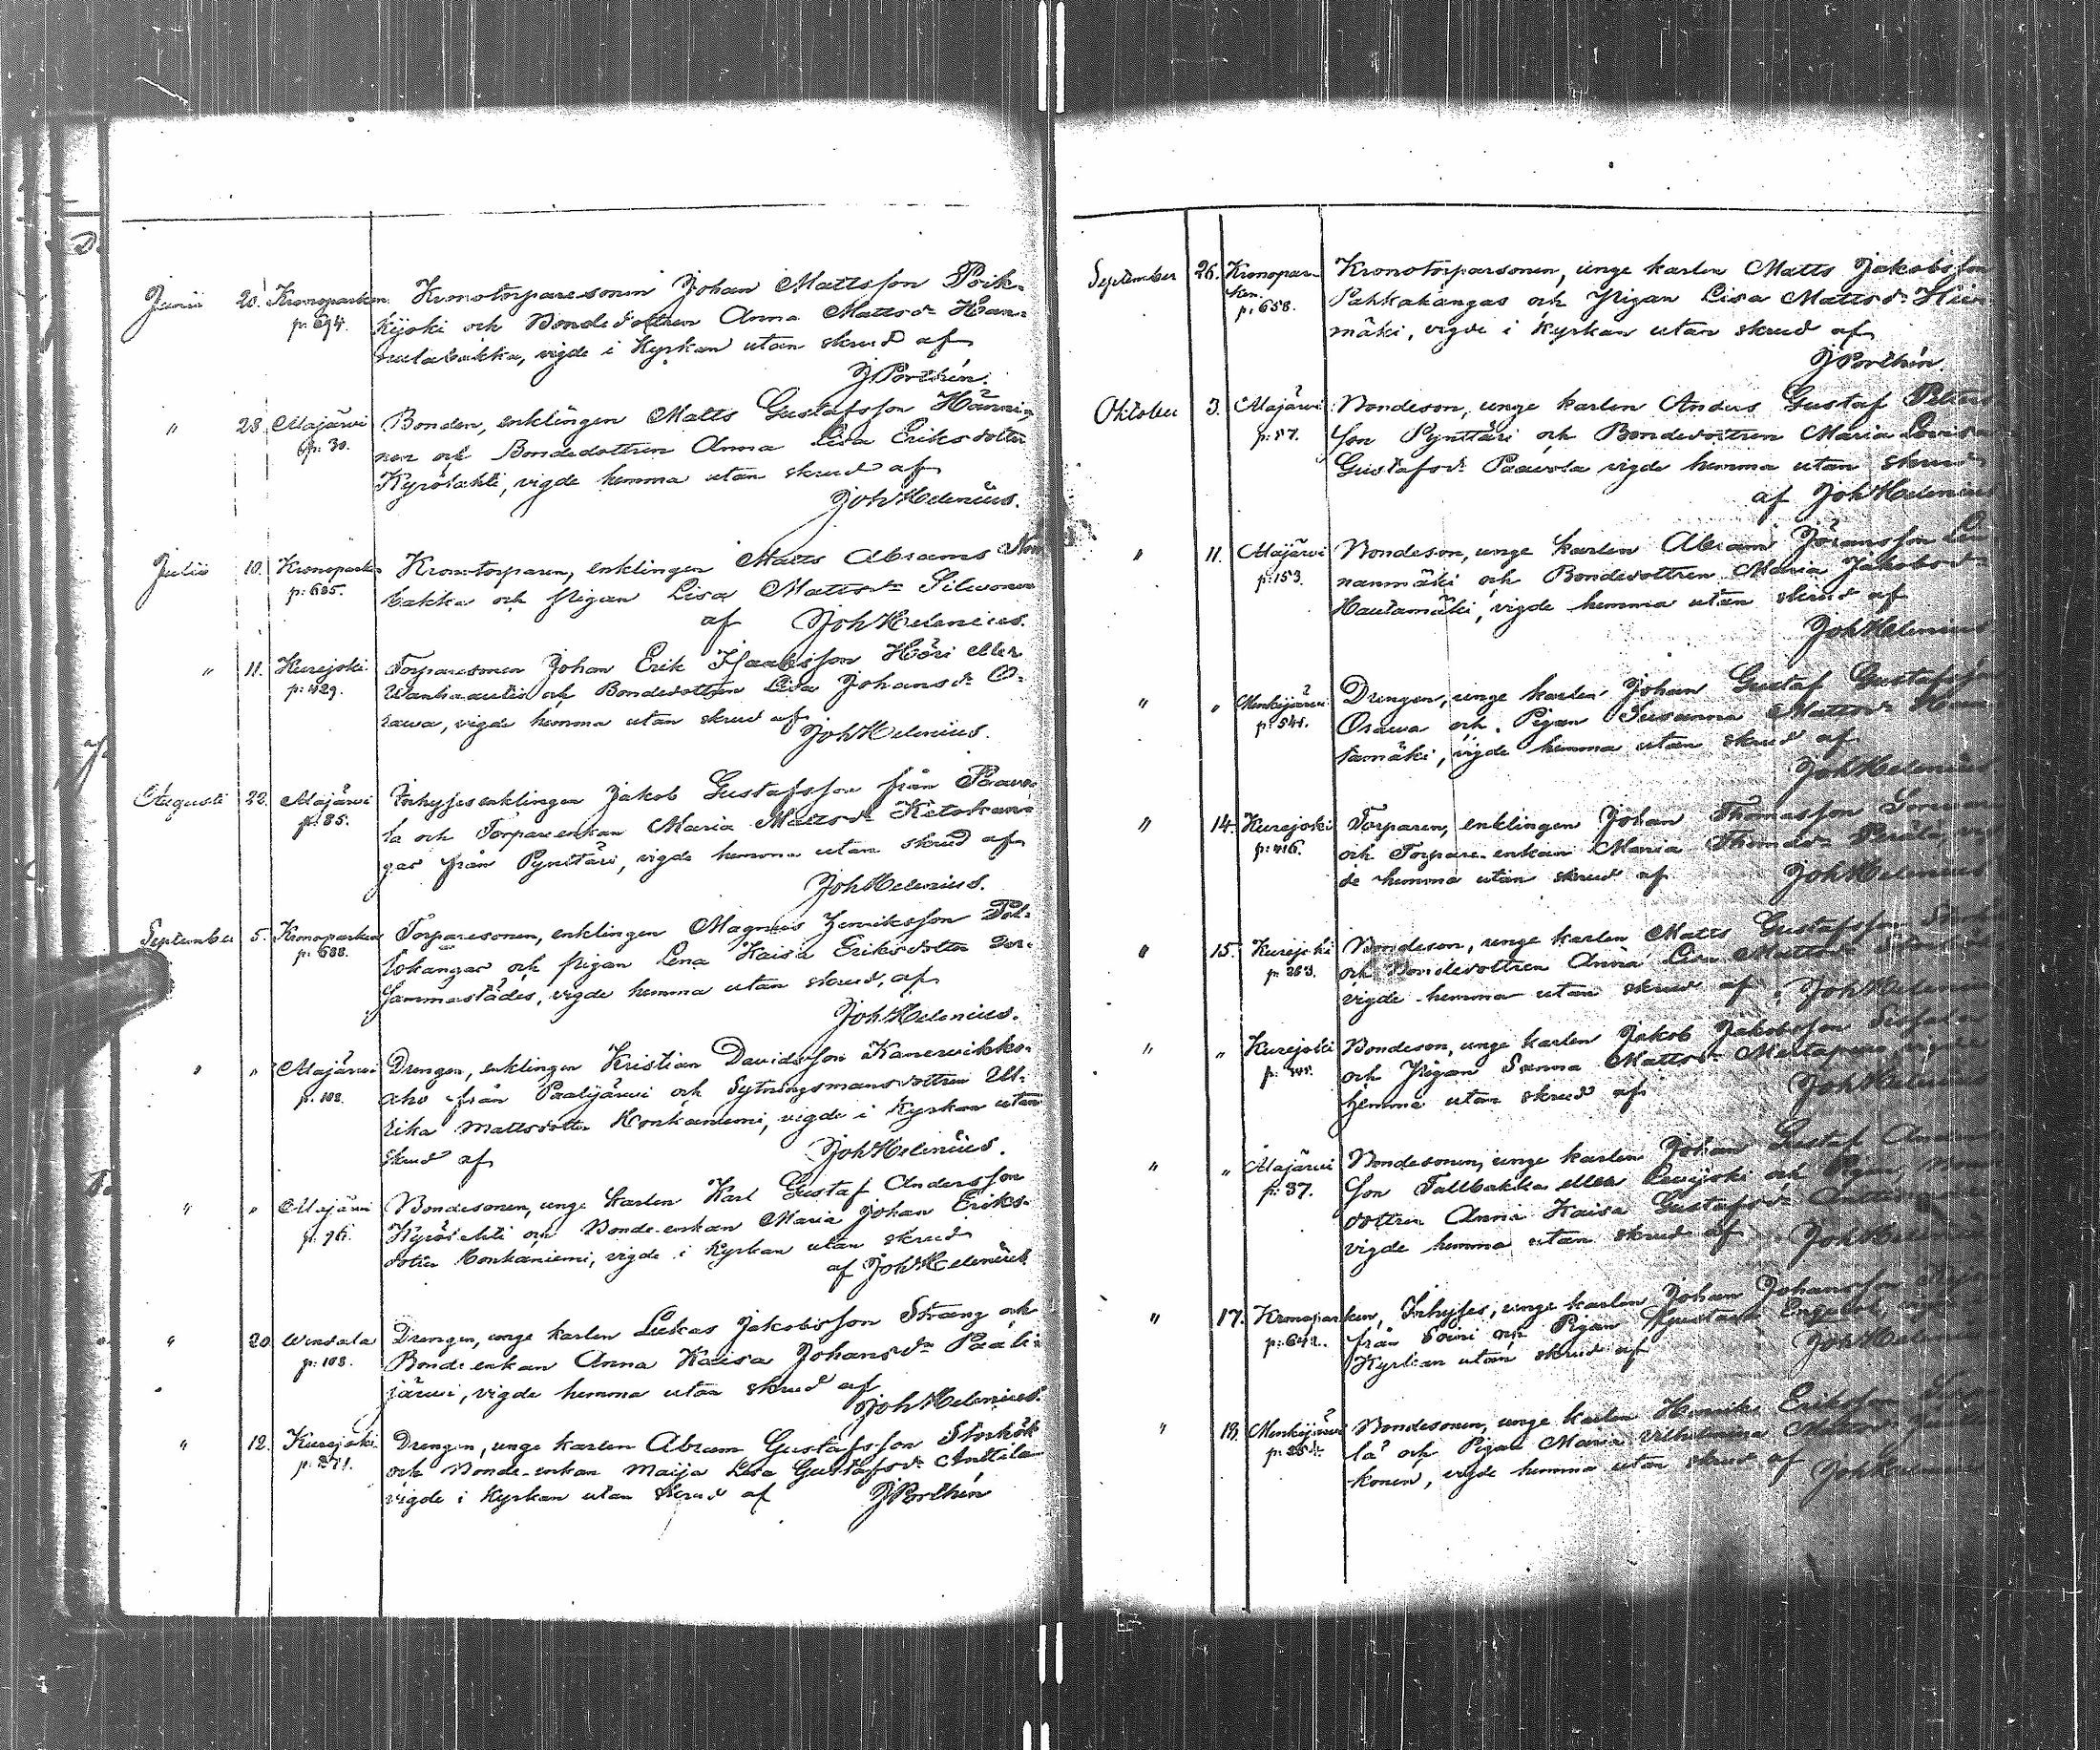 Junii 20. Kronoparken Kronotorparesonen Johan Mattsson Poik-
p: 694. kijoki och Bondedottren Anna Mattsdr Han-
nulabakka, vigde i Kyrkan utan skrud af
J Porthén.
" 28. Alajärvi Bonden, enklingen Matts Gustafsson Hänni-
p: 30. nen och Bondedottren Anna Lisa Eriksdotter
Kyrölahti, vigde hemma utan skrud af
Joh Helenius.
Julii 10. Kronoparken Kronotorparen, enklingen Matts Abramsson
p: 685. bakka och Pigan Lisa Mattsdr Silwonen
af Joh Helenius.
" 11. Kurejoki Torparesonen Johan Erik Isaaksson Höri eller
p: 429. Wanhaautio och Bondedottren Lisa Johansdr O-
rawa, vigde hemma utan skrud af
Joh Helenius.
Augusti 22. Alajärvi Inhysesenklingen Jakob Gustafsson från Paavo-
p: 85. la och Torpareenkan Maria Mattsdr Ketokan-
gas från Pynttäri, vigde hemma utan skrud af
Joh Helenius.
September 5. Kronoparken Torparesonen, enklingen Magnus Henriksson Pol-
p: 688. lokangas och Pigan Lena Kaisa Eriksdotter der-
sammastädes, vigde hemma utan skrud, af
Joh Helenius.
" " Alajärvi Drengen, enklingen Kristian Davidsson Kanervikko-
p: 102. aho från Paalijärvi och Sytningsmansdottren Ul-
rika Mattsdotter Honkaniemi, vigde i Kyrkan utan
skrud af Joh Helenius.
" " Alajärvi Bondesonen, unge karlen Karl Gustaf Andersson
p: 96. Kyrölahti och Bonde-enkan Maria Johan Eriks-
dotter Honkaniemi, vigde i Kyrkan utan skrud
af Joh Helenius
" 20. Windala Drengen, unge karlen Lukas Jakobsson Sträng och
p: 108. Bonde enkan Anna Kaisa Johansdr Paali-
järvi, vigde hemma utan skrud af
Joh Helenius.
" 12. Kurejoki Drengen, unge karlen Abram Gustafsson Storkök
p: 271. och Bonde-enkan Maija Lisa Gustafsdr Anttila
vigde i Kyrkan utan skrud af J Porthén
September 26. Kronopar- Kronotorparsonen, unge karlen Matts Jakobsson
ken. Pahkakangas och Pigan Lisa Mattsdr
p: 658. mäki, vigde i Kyrkan utan skrud af
J Porthén.
Oktober 3. Alajärvi Bondeson, unge karlen Anders Gustaf Petters
p: 87. son Pynttäri och Bondedottren Maria Lovisa
Gustafsdr Paavola vigde hemma utan skrud
af Joh Helenius
" 11. Alajärvi Bondeson, unge karlen Abram Jöransson
p: 153. nanmäki och Bondedottren Maria Jakobsdr
Hautamäki, vigde hemma utan skrud af
Joh Helenius
" " Menkijärvi Drengen, unge karlen Johan Gustaf Gustafsson
p: 541. Orawa och Pigan Susanna Mattsdr Hau
tamäki, vigde hemma utan skrud af
Joh Helenius
" 14. Kurejoki Torparen, enklingen Johan Thomasson
p: 416. och Torpare-enkan Maria Thomasdr Perälä, vig
de hemma utan skrud af Joh Helenius
" 15. Kurejoki Bondeson, unge karlen Matts Gustafsson
p: 263. och Bondedottren Anna Lisa Mattsdr
vigde hemma utan skrud af Joh Helenius
" " Kurejoki Bondeson, unge karlen Jakob Jakobsson
och Pigan Sanna Mattsdr vigde
hemma utan skrud af Joh Helenius
" " Alajärvi Bondesonen, unge karlen Johan Gustaf
p: 37. son Tallbakka eller Levijoki och
dottren Anna Kaisa Gustafsdr
vigde hemma utan skrud af Joh Helenius
" 17. Kronoparken, Inhyses, unge karlen Johan Johansson
p: 642. från Soini och Pigan
Kyrkan utan skrud af Joh Helenius
" 18. Menkijärvi Bondesonen, unge karlen Henrik Eriksson
la och Pigan Maria Vilhelmina
konen, vigde hemma utan skrud af Joh Helenius